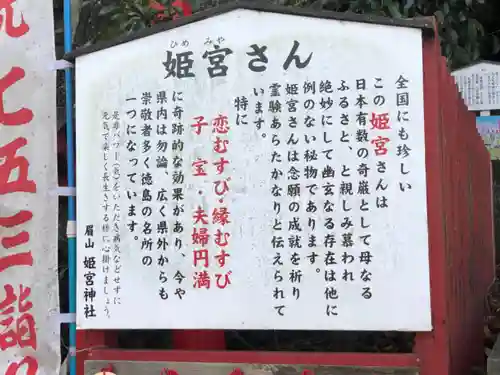 祝 七五三詣
ひめ みや
姫宮さん
全国にも珍しい
この姫宮さんは
日本有数の奇巌として母なる
ふるさと、と親しみ慕われ
絶妙にして幽玄なる存在は他に
例のない秘物であります。
姫宮さんは念願の成就を祈り
霊験あらたかなりと伝えられて
います。
特に
恋むすび・縁むすび
子宝・夫婦円満
に奇跡的な効果があり、今や
県内は勿論、広く県外からも
崇敬者多く徳島の名所の
一つになっています。
是非パワー(気)をいただき病気などせずに
元気で楽しく長生きする様に心掛けましょう
眉山 姫宮神社